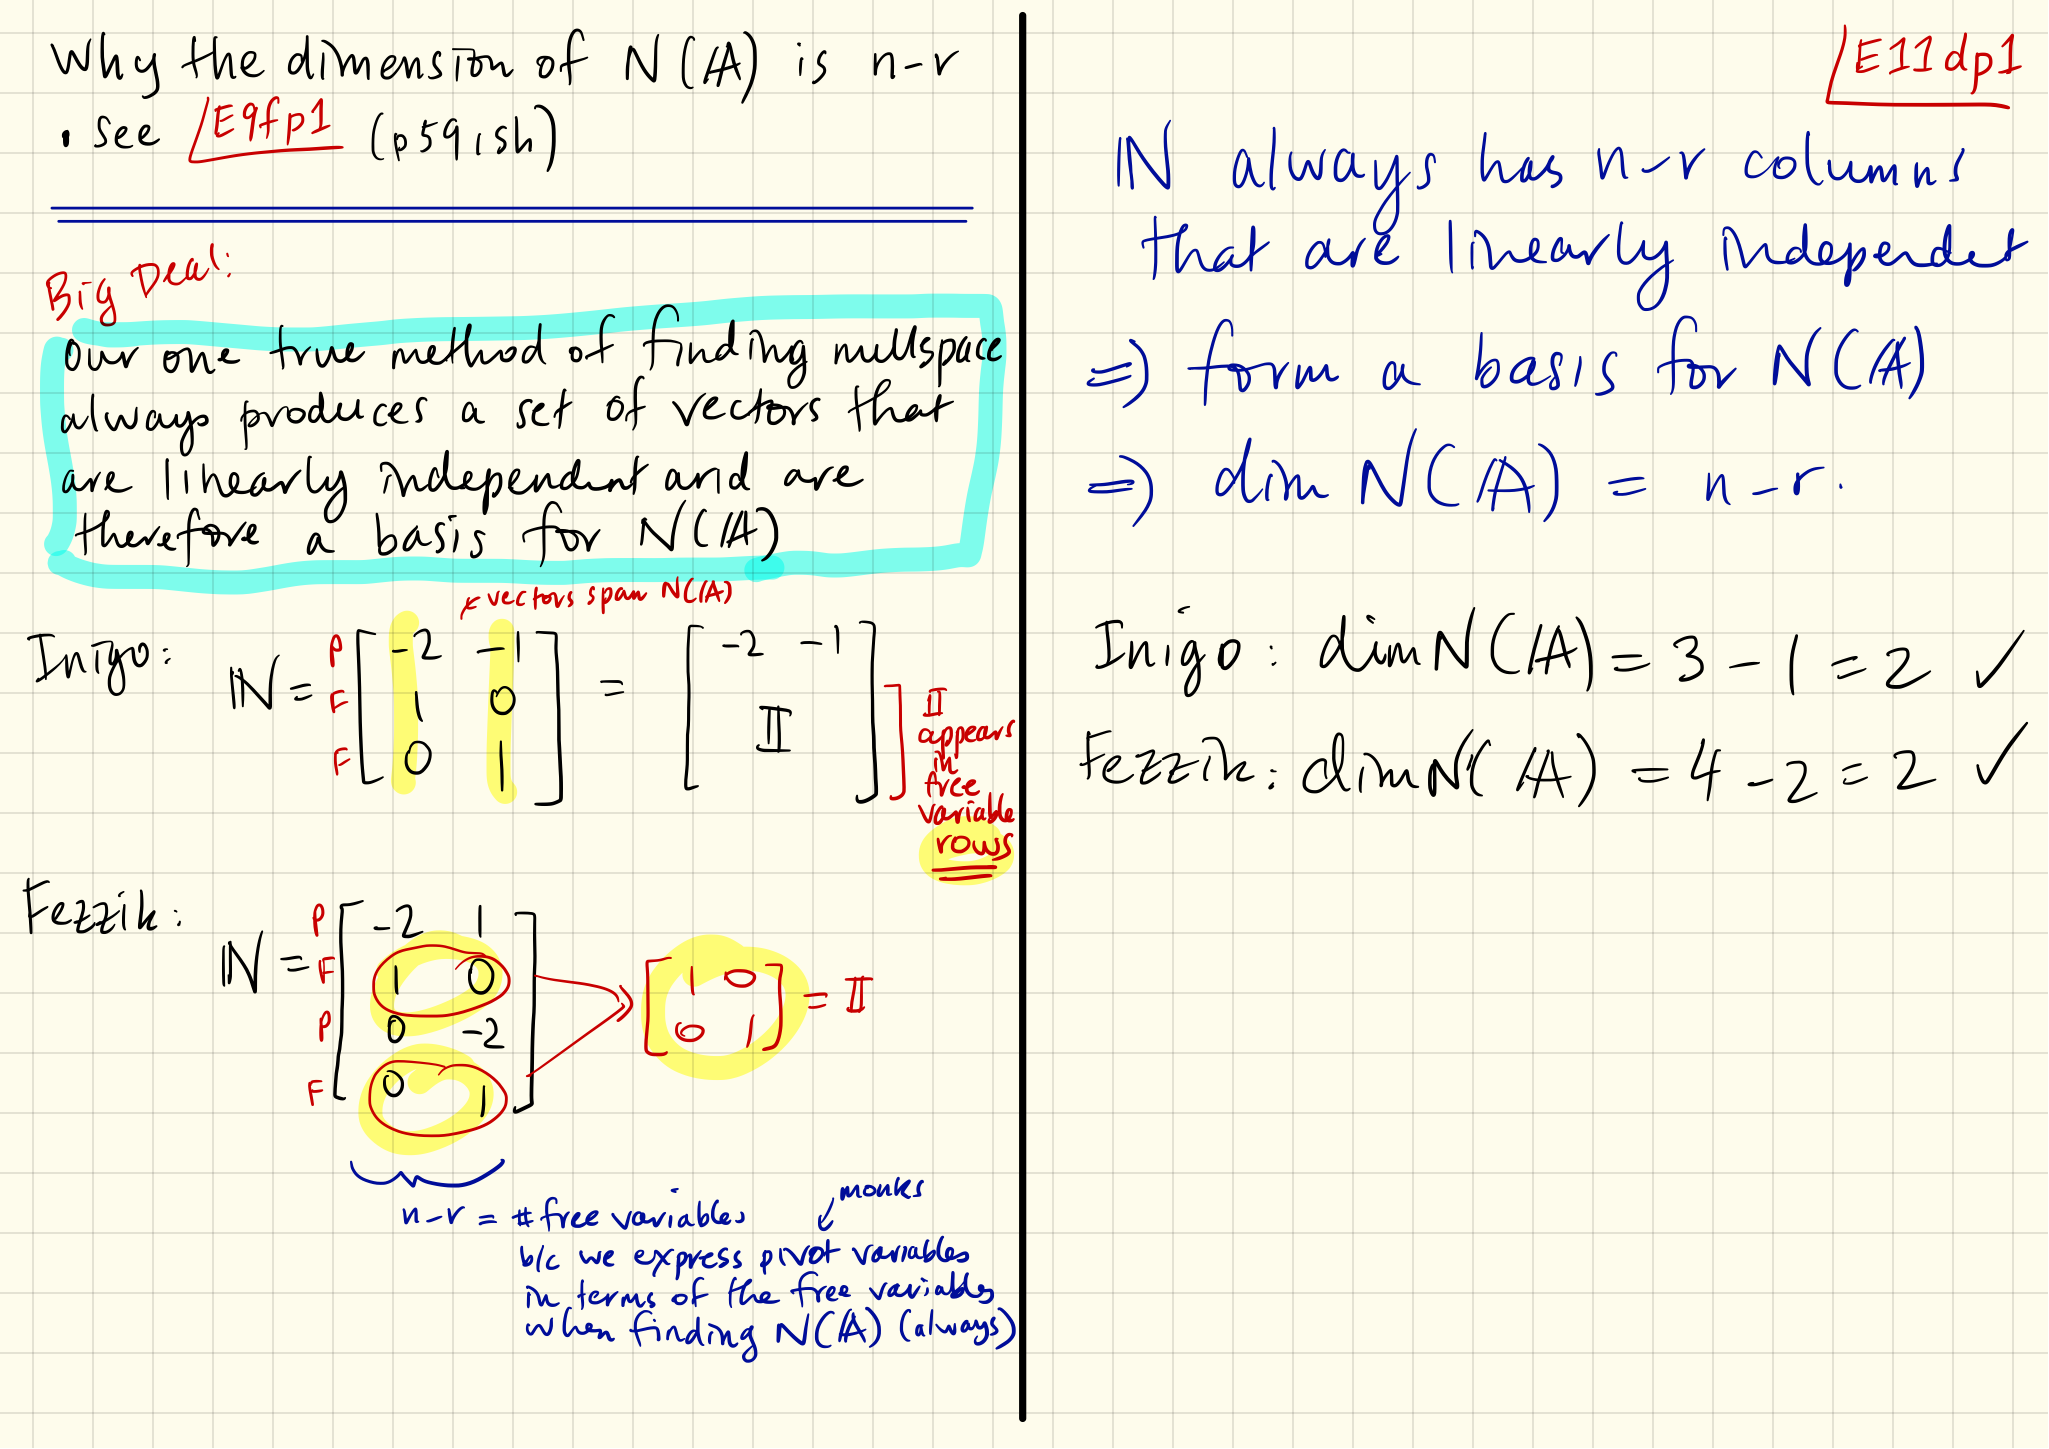 Why the dimension of N(A) is n-r
• see E9fp1 (p59ish)
Big Deal:
Our one true method of finding nullspace
always produces a set of vectors that
are linearly independent and are
therefore a basis for N(A)
vectors span N(A)
Inigo:
N = P [ -2 -1 ] = [ -2 -1 ]
F [ 1 0 ] [ I ]
F [ 0 1 ]
I
appears
in
free
variable
rows
Fezzik:
N = P [ -2 1 ]
F [ 1 0 ]
P [ 0 -2 ]
F [ 0 1 ]
[ 1 0 ] = I
[ 0 1 ]
n-r = # free variables
monks
b/c we express pivot variables
in terms of the free variables
when finding N(A) (always)
E11dp1
N always has n-r columns
that are linearly independet
⇒ form a basis for N(A)
⇒ dim N(A) = n-r.
Inigo: dim N(A) = 3 - 1 = 2 ✓
Fezzik: dim N(A) = 4 - 2 = 2 ✓